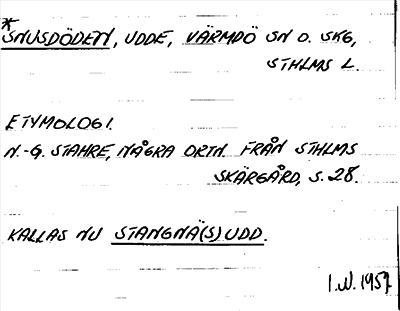 *
SNUSDÖDEN, UDDE, VÄRMDÖ SN O. SKG,
STHLMS L.
ETYMOLOGI.
N.-G. STAHRE, NÅGRA ORTN. FRÅN STHLMS
SKÄRGÅRD, S. 28.
KALLAS NU STANGNÄ(S)UDD.
I.W. 1957